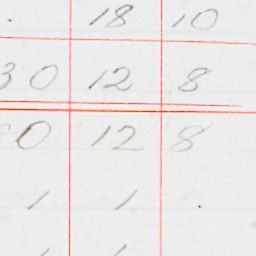 18 10
30 12 8
30 12 8
1 1
1 1